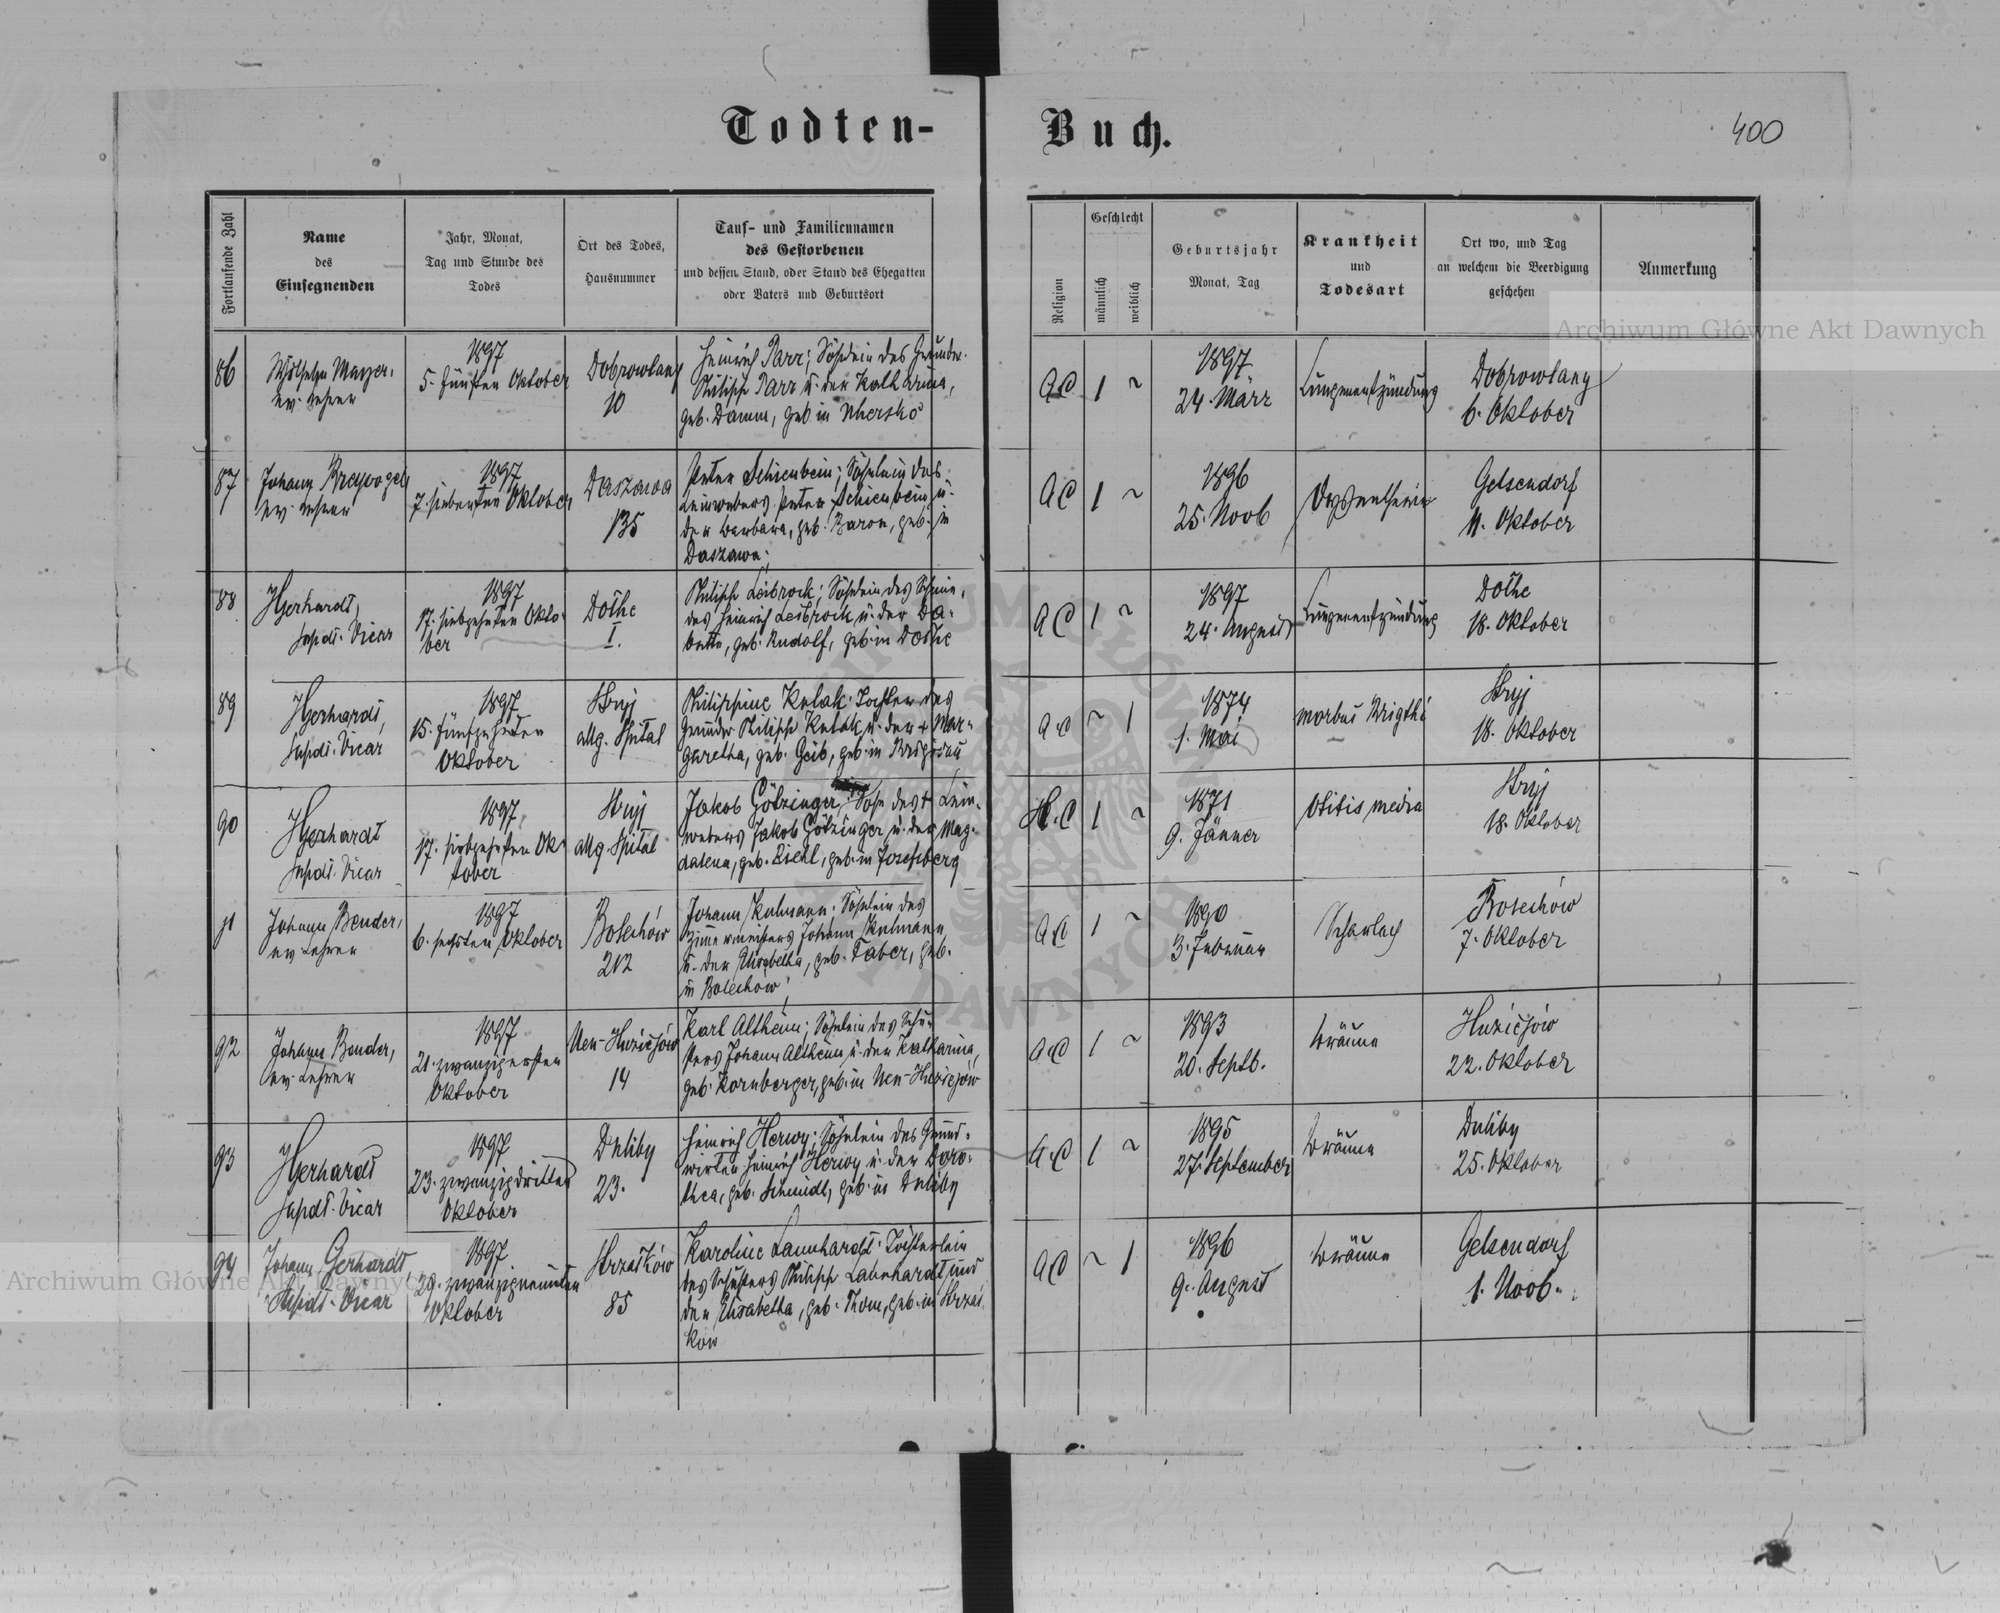 Todten-Buch.
400
Fortlaufende Zahl
Name
des
Einsegnenden
Jahr, Monat,
Tag und Stunde des
Todes
Ort des Todes,
Hausnummer
Tauf- und Familiennamen
des Gestorbenen
und dessen Stand, oder Stand des Ehegatten
oder Vaters und Geburtsort
Religion
Geschlecht
männlich
weiblich
Geburtsjahr
Monat, Tag
Krankheit
und
Todesart
Ort wo, und Tag
an welchem die Beerdigung
geschehen
Anmerkung
86
Wilhelm Mayer,
ev. Lehrer
1897
5. fünften Oktober
Dobrowlany
10
Heinrich Parr; Söhnlein des Grundw.
Philipp Parr u. der Katharina,
geb. Damm, geb in Uhersko
AC
1
~
1897
24 März
Lungenentzündung
Dobrowlany
6. Oktober
87
Johann Breyvogel
ev. Lehrer
1897
7. siebenten Oktober
Daszawa
135
Peter Schienbein; Söhnlein des
Leinwebers Peter Schienbein u.
der Barbara, geb. Baron, geb. in
Daszawa;
AC
1
~
1896
25. Novb
Dyssentherie
Gelsendorf
11. Oktober
88
Gerhardt,
Supdt. Vicar
1897
17. siebzehnten Okto-
ber
Dolhe
I.
Philipp Leibrock; Söhnlein des
des Heinrich Leibrock u. der Ba-
betta, geb. Rudolf, geb. in Dolhe
AC
1
~
1897
24. August
Lungenentzündung
Dolhe
18. Oktober
89
Gerhardt,
Supdt. Vicar
1897
15. fünfzehnten
Oktober
Stryj
allg. Spital
Philippine Kulak; Tochter des
Philipp Kulak u. der + Mar-
garetha, geb. Geib, geb. in Brigidau
AC
~
1
1874
1. Mai
morbus Brigthi
Stryj
18. Oktober
90
Gerhardt
Supdt. Vicar
1897
17. siebzehnten Ok-
tober
Stryj
allg. Spital
Jakob Götzinger Sohn des + Lein-
webers Jakob Götzinger u. der Mag-
dalena, geb. Diehl, geb. in Josefsberg
H.C
1
~
1871
9. Jänner
Otitis media
Stryj
18. Oktober
91
Johann Bender,
ev Lehrer
1897
6. sechsten Oktober
Bolechów
212
Johann Kulmann; Söhnlein des
Zimmermeisters Johann Kulmann
u. der Elisabetha, geb. Faber, geb.
in Bolechow;
AC
1
~
1890
3. Februar
Scharlach
Bolechów
7. Oktober
92
Johann Bender,
ev. Lehrer
1897
21. zwanzigersten
Oktober
Neu-Huziejów
14
Karl Altheim; Söhnlein des Schu-
sters Johann Altheim u. der Katharina,
geb. Kornberger, geb. in Neu-Huziejów
AC
1
~
1893
20. Septb.
Bräune
Huziejów
22. Oktober
93
Gerhardt
Supdt. Vicar
1897
23. zwanzigdritten
Oktober
Duliby
23.
Heinrich Herwy; Söhnlein des Grund-
wirten Heinrich Herwy u. der Doro-
thea, geb. Schmidt, geb. in Duliby
A.C
1
~
1895
27. September
Bräune
Duliby
25. Oktober
94
Johann Gerhardt
Supdt. Vicar
1897
29. zwanzigneunten
Oktober
Strzałków
85
Karoline Lannhardt; Töchterlein
des Schusters Philipp Lannhardt und
der Elisabetha, geb. Thom, geb. in Strzał-
ków
AC
~
1
1896
9. August
Bräune
Gelsendorf
1. Novb.
Archiwum Główne Akt Dawnych
Archiwum Główne Akt Dawnych